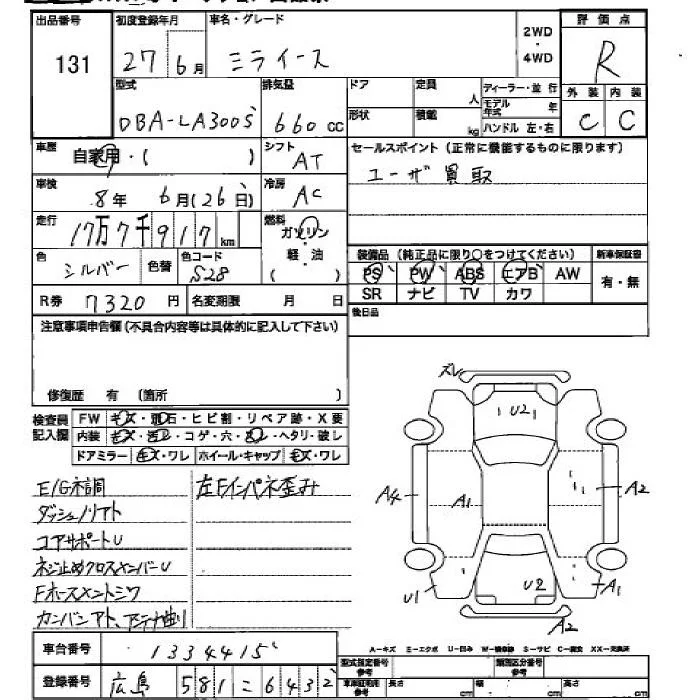 出品番号 初度登録年月 車名・グレード 2WD・4WD 評価点
131 27 6月 ミライース R
型式 排気量 ドア 定員 人 ディーラー・並行 外装 内装
DBA-LA300S 660cc 形状 積載 kg モデル年式 年 C C
ハンドル 左・右
車歴 自家用・( ) シフト AT セールスポイント (正常に機能するものに限ります)
車検 8年 6月(26日) 冷房 AC ユーザ買取
走行 17万7千917km 燃料 ガソリン・軽・油 ( )
色 シルバー 色替 色コード S28 装備品 (純正品に限り○をつけてください) 新車保証書
PS PW ABS エアB AW 有・無
R券 7320円 名変期限 月 日 SR ナビ TV カワ
注意事項申告欄(不具合内容等は具体的に記入して下さい) 後日品
修復歴 有 (箇所 )
検査員記入欄 FW キズ・飛石・ヒビ割・リペア跡・X要
内装 キズ・汚レ・コゲ・穴・ヘタリ・破レ
ドアミラー キズ・ワレ ホイール・キャップ キズ・ワレ
ズレ
U2
A4 A1 A2
U1 U2 A1
A2
E/G不調 左Fインパネ歪み
ダッシュノリアト
コアサポートU
ネジ止めクロスメンバーU
Fホースメントシワ
カンバンアト、アンテナ曲り
A-キズ E-エクボ U-凹み W-補修跡 S-サビ C-腐食 XX-交換済
車台番号 1334415 型式指定番号 類別区分番号
登録番号 広島 581 こ 6432 参考 長さ cm 幅 cm 高さ cm